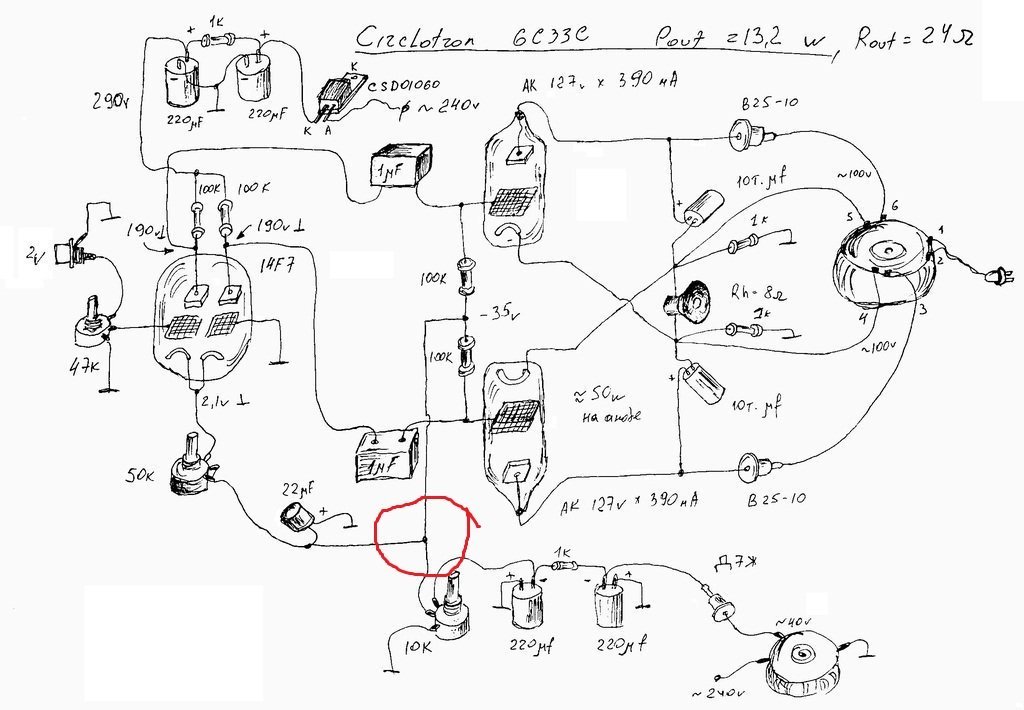 Circlotron 6C33C Pout =13,2 w, Rout = 24Ω
+ 1K +
K
CSD01060
K A
~240v
290v
220µF
220µF
AK 127v x 390мA
B25-10
1µF
100K
100K
190v⊥
190v⊥
14F7
2v
47K
2,1v⊥
50K
22µF
+
100K
-35v
100K
1µF
+
10т. µf
1K
Rh=8Ω
1K
+
10т. µf
~100v
5
6
1
2
4
3
~100v
≈50w
на аноде
AK 127v x 390мA
B25-10
10K
+
-
1K
-
+
220µf
220µf
Д7Ж
~40v
~240v